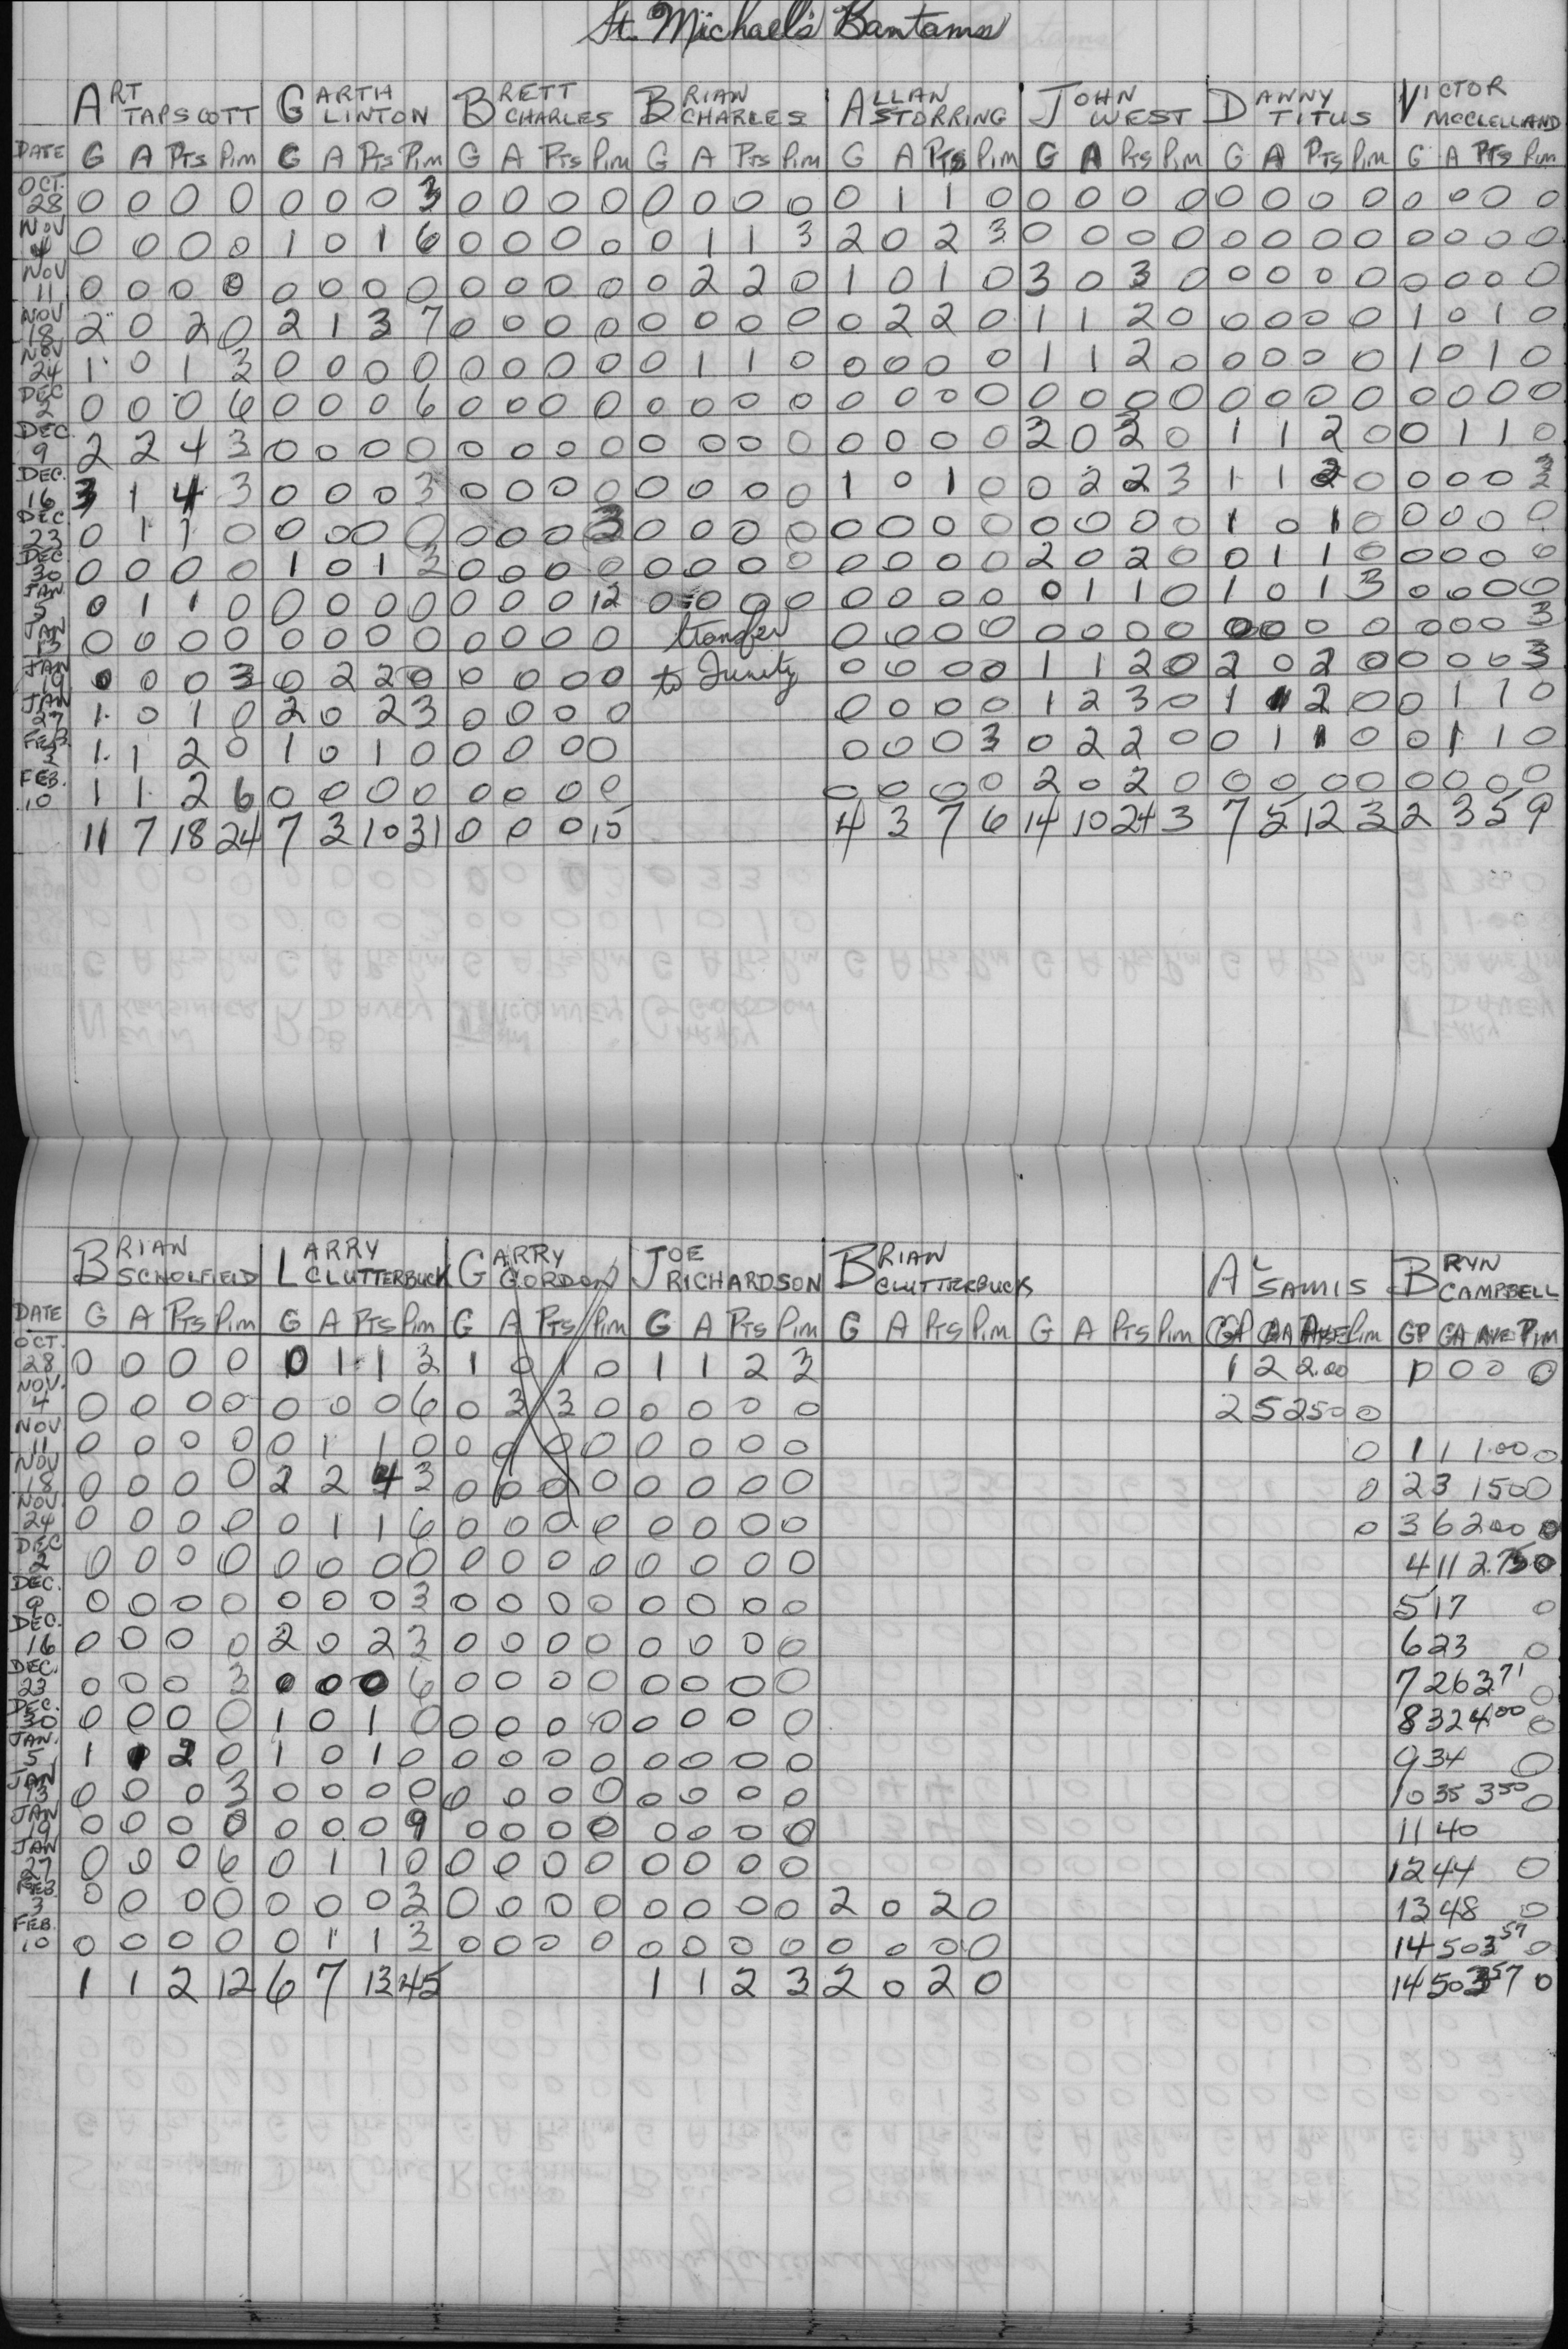 St. Michael's Bantams
ART TAPSCOTT GARTH LINTON BRETT CHARLES BRIAN CHARLES ALLAN STORRING JOHN WEST DANNY TITUS VICTOR MCCLELLAND
DATE G A PTS PIM G A PTS PIM G A PTS PIM G A PTS PIM G A PTS PIM G A PTS PIM G A PTS PIM G A PTS PIM
OCT. 28 0 0 0 0 0 0 0 3 0 0 0 0 0 0 0 0 0 1 1 0 0 0 0 0 0 0 0 0 0 0 0 0
NOV 4 0 0 0 0 1 0 1 6 0 0 0 0 0 1 1 3 2 0 2 3 0 0 0 0 0 0 0 0 0 0 0 0
NOV 11 0 0 0 0 0 0 0 0 0 0 0 0 0 2 2 0 1 0 1 0 3 0 3 0 0 0 0 0 0 0 0 0
NOV 18 2 0 2 0 2 1 3 7 0 0 0 0 0 0 0 0 0 2 2 0 1 1 2 0 0 0 0 0 1 0 1 0
NOV 24 1 0 1 3 0 0 0 0 0 0 0 0 0 1 1 0 0 0 0 0 1 1 2 0 0 0 0 0 1 0 1 0
DEC 2 0 0 0 6 0 0 0 6 0 0 0 0 0 0 0 0 0 0 0 0 0 0 0 0 0 0 0 0 0 0 0 0
DEC. 9 2 2 4 3 0 0 0 0 0 0 0 0 0 0 0 0 0 0 0 0 2 0 2 0 1 1 2 0 0 1 1 0
DEC. 16 3 1 4 3 0 0 0 3 0 0 0 0 0 0 0 0 1 0 1 0 0 2 2 3 1 1 2 0 0 0 0 3
DEC 23 0 1 1 0 0 0 0 0 0 0 0 3 0 0 0 0 0 0 0 0 0 0 0 0 1 0 1 0 0 0 0 0
DEC 30 0 0 0 0 1 0 1 3 0 0 0 0 0 0 0 0 0 0 0 0 2 0 2 0 0 1 1 0 0 0 0 0
JAN 5 0 1 1 0 0 0 0 0 0 0 0 12 0 0 0 0 0 0 0 0 0 1 1 0 1 0 1 3 0 0 0 0
JAN 13 0 0 0 0 0 0 0 0 0 0 0 0 transfer 0 0 0 0 0 0 0 0 0 0 0 0 0 0 0 3
JAN 19 0 0 0 3 0 2 2 0 0 0 0 0 to 0 0 0 0 1 1 2 0 2 0 2 0 0 0 0 3
JAN 27 1 0 1 0 2 0 2 3 0 0 0 0 0 0 0 0 1 2 3 0 1 1 2 0 0 1 1 0
FEB. 3 1 1 2 0 1 0 1 0 0 0 0 0 0 0 0 3 0 2 2 0 0 1 1 0 0 1 1 0
FEB. 10 1 1 2 6 0 0 0 0 0 0 0 0 0 0 0 0 2 0 2 0 0 0 0 0 0 0 0 0
11 7 18 24 7 3 10 31 0 0 0 15 4 3 7 6 14 10 24 3 7 5 12 3 2 3 5 9
BRIAN SCHOLFIELD LARRY CLUTTERBUCK GARRY GORDON JOE RICHARDSON BRIAN CLUTTERBUCK AL SAMIS BRYN CAMPBELL
DATE G A PTS PIM G A PTS PIM G A PTS PIM G A PTS PIM G A PTS PIM G A PTS PIM GP GA AVE PIM GP GA AVE PIM
OCT. 28 0 0 0 0 0 1 1 3 1 0 1 0 1 1 2 3 1 2 2.00 0 0 0
NOV. 4 0 0 0 0 0 0 0 6 0 3 3 0 0 0 0 0 2 5 250 0
NOV 11 0 0 0 0 0 1 1 0 0 0 0 0 0 0 0 0 0 1 1 1.00 0
NOV 18 0 0 0 0 2 2 4 3 0 0 0 0 0 0 0 0 0 2 3 150 0
NOV. 24 0 0 0 0 0 1 1 6 0 0 0 0 0 0 0 0 0 3 6 2.00 0
DEC 2 0 0 0 0 0 0 0 0 0 0 0 0 0 0 0 0 4 11 2.75 0
DEC. 9 0 0 0 0 0 0 0 3 0 0 0 0 0 0 0 0 5 17 0
DEC. 16 0 0 0 0 2 0 2 3 0 0 0 0 0 0 0 0 6 23 0
DEC. 23 0 0 0 3 0 0 0 6 0 0 0 0 0 0 0 0 7 26 3.71 0
DEC. 30 0 0 0 0 1 0 1 0 0 0 0 0 0 0 0 0 8 32 400 0
JAN. 5 1 1 2 0 1 0 1 0 0 0 0 0 0 0 0 0 9 34 0
JAN 13 0 0 0 3 0 0 0 0 0 0 0 0 0 0 0 0 10 35 350 0
JAN 19 0 0 0 0 0 0 0 9 0 0 0 0 0 0 0 0 11 40
JAN 27 0 0 0 6 0 1 1 0 0 0 0 0 0 0 0 0 12 44 0
FEB. 3 0 0 0 0 0 0 0 3 0 0 0 0 0 0 0 0 2 0 2 0 13 48 0
FEB. 10 0 0 0 0 0 1 1 3 0 0 0 0 0 0 0 0 0 0 0 0 14 50 357 0
1 1 2 12 6 7 13 45 1 1 2 3 2 0 2 0 14 50 357 0